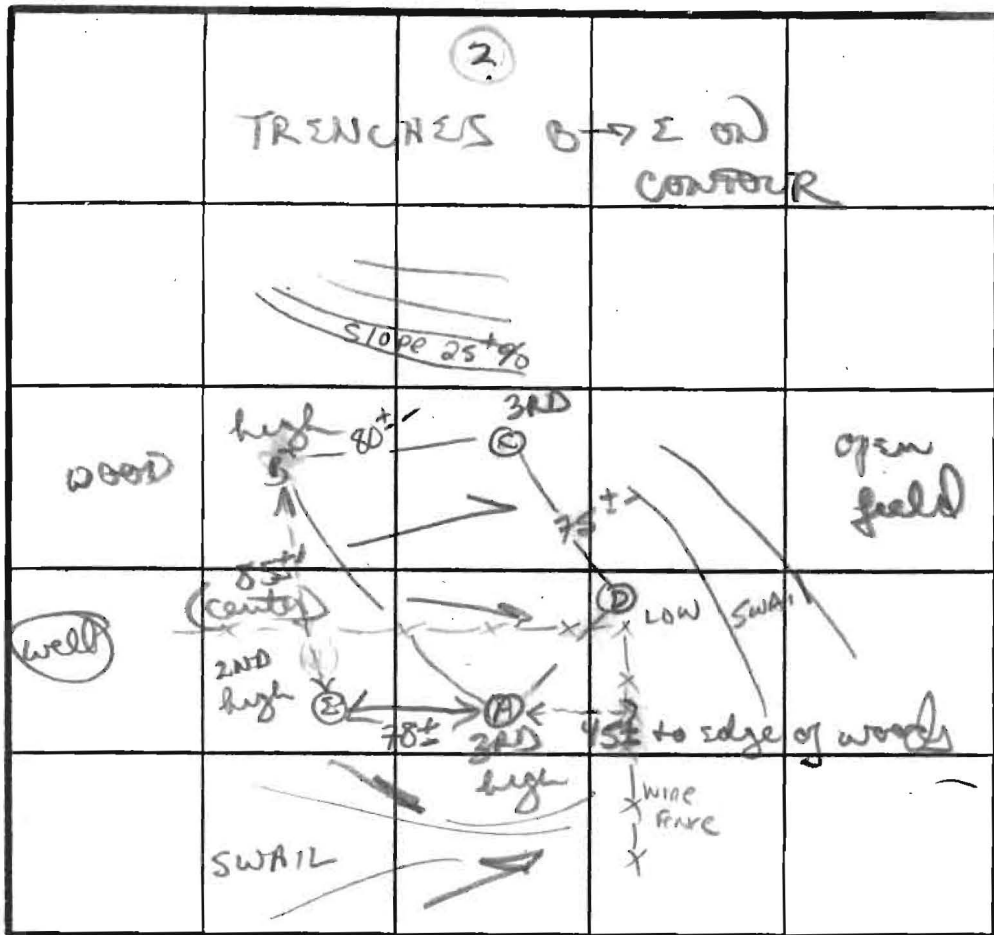 2
TRENCHES B → E ON
CONTOUR
slope 25±%
high
80±
3RD
C
WOOD
B
open
field
75±
85±
(center)
D
LOW
SWAIL
well
2ND
high
E
A
78±
3RD
high
45± to edge of woods
wire
Fence
SWAIL